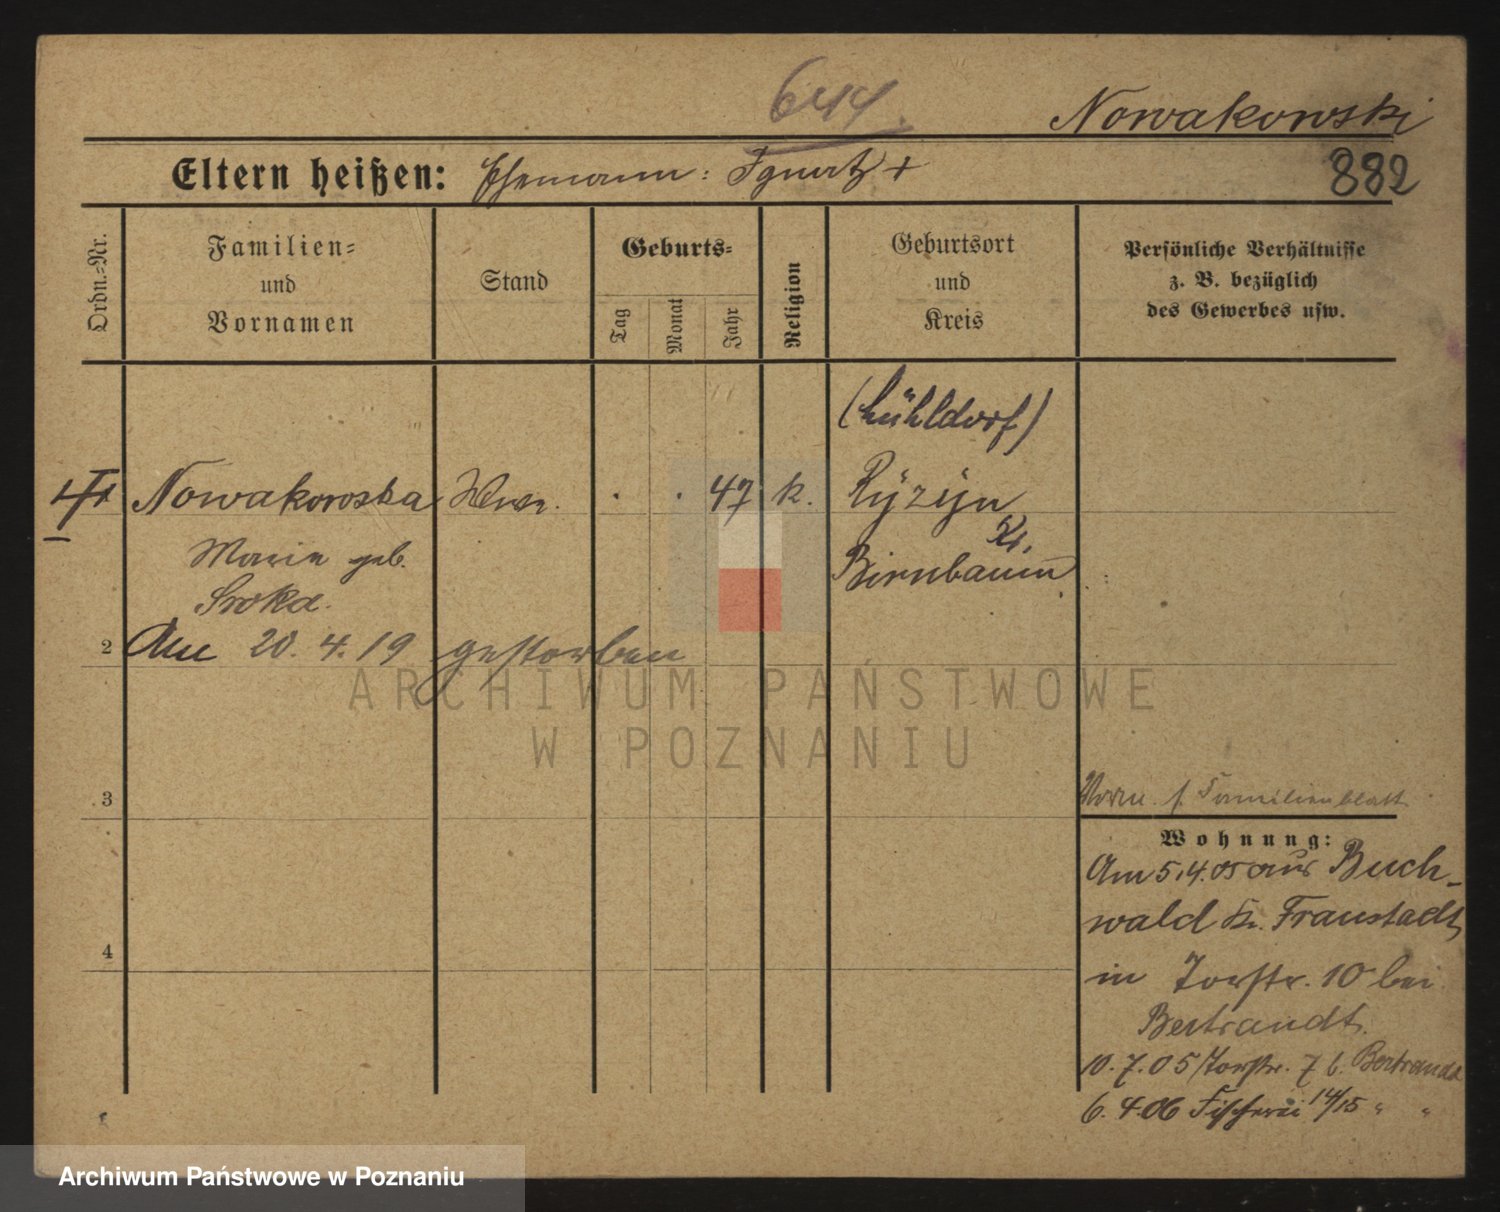 644.
Nowakowski
Eltern heißen: Ehemann: Ignatz +
882
Ordn.-Nr.
Familien-
und
Vornamen
Stand
Geburts-
Tag
Monat
Jahr
Religion
Geburtsort
und
Kreis
Persönliche Verhältnisse
z. B. bezüglich
des Gewerbes usw.
(Lühldorf)
Nowakowska Wwe. . . 47 k. Ryzyn
Marie geb. Kr.
Birnbaum
Sroka.
2 Am 20.4.19 gestorben
ARCHIWUM PAŃSTWOWE
W POZNANIU
3
s. Familienblatt
Wohnung:
Am 5.4.05 aus Buch-
wald Kr. Fraustadt
4
in Torstr. 10 bei
Bertrandt.
10.7.05 Torstr. 7 b. Bertrandt
6.4.06 Fischerei 14/15 " "
Archiwum Państwowe w Poznaniu